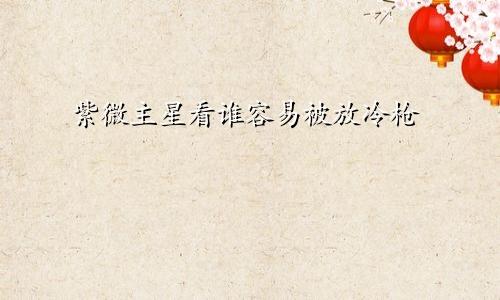 紫微主星看谁容易被放冷枪